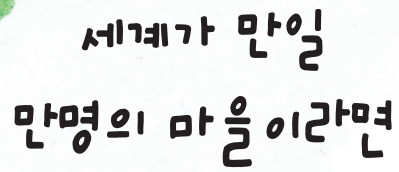 세계가 만일
만명의 마을이라면